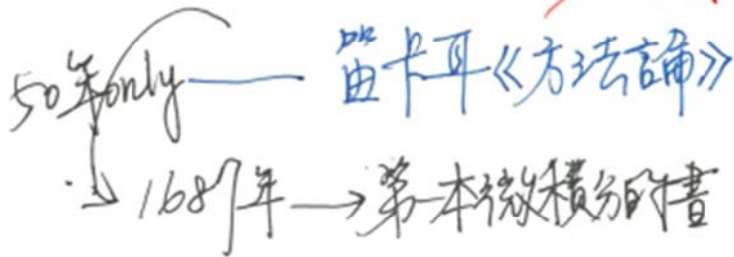 50年only — 笛卡耳《方法論》
→ 1687年 → 第一本微積分的書